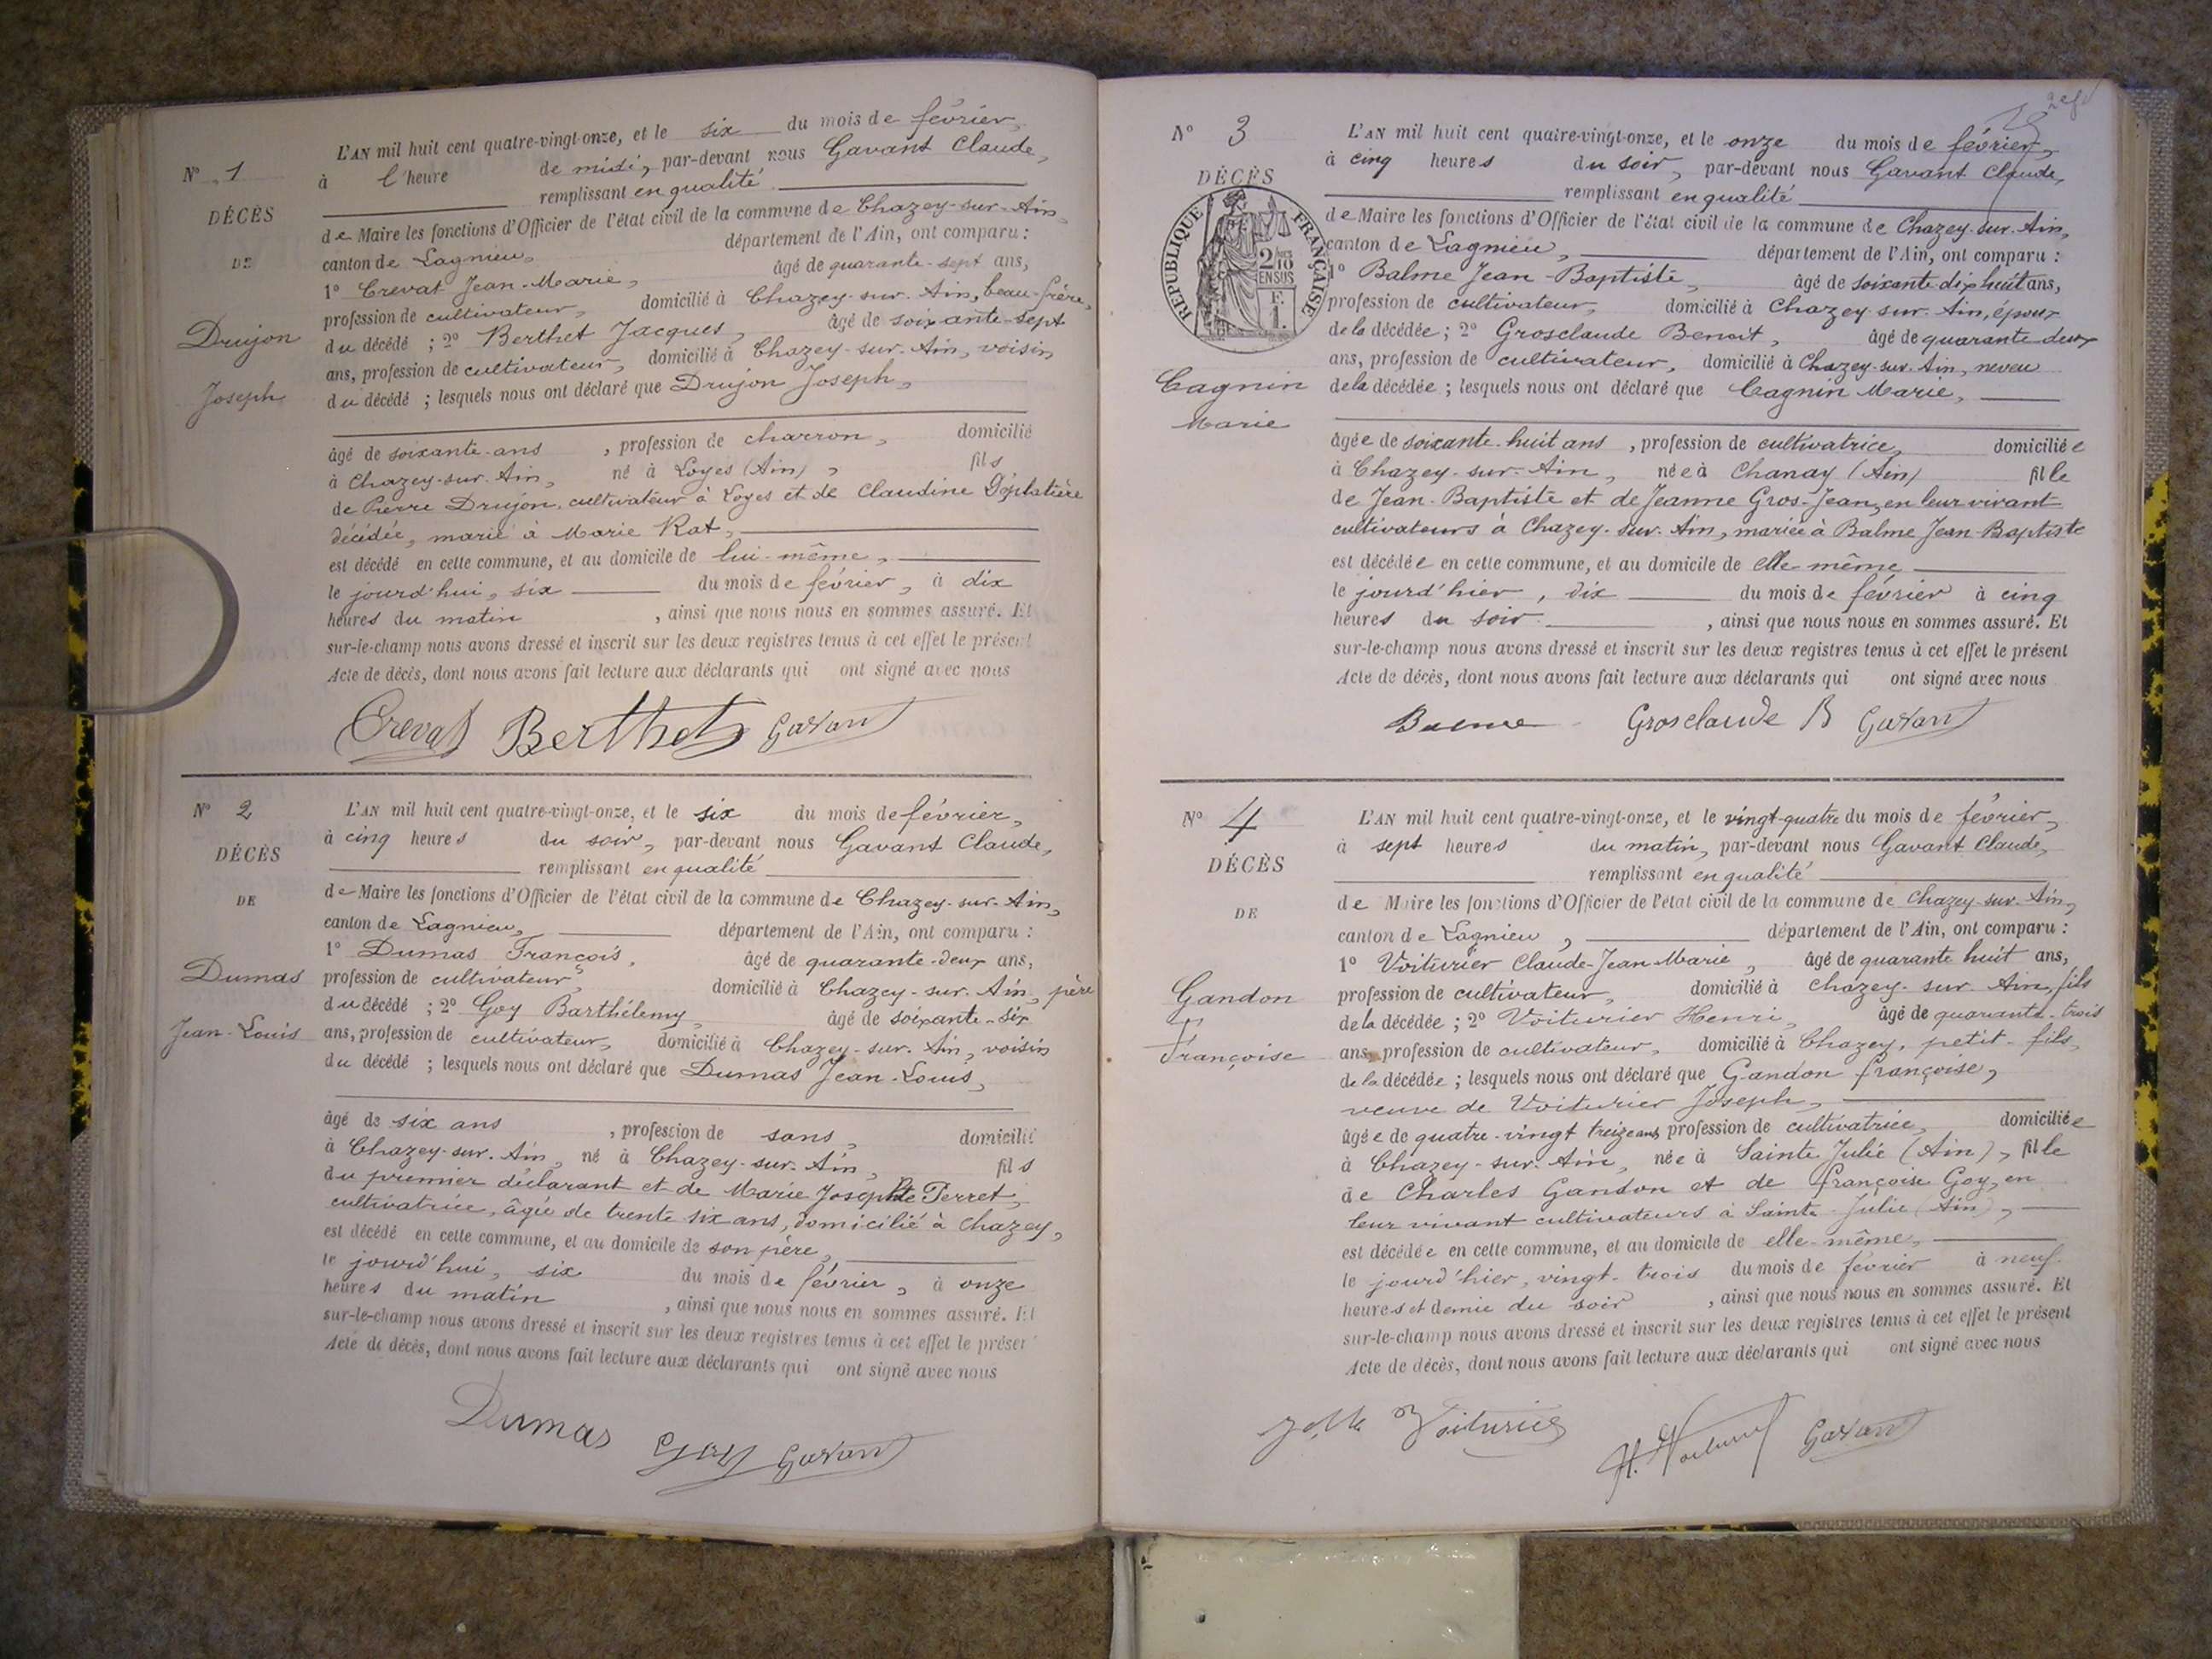 N° 1
DÉCÈS
DE
Drujon
Joseph
L'AN mil huit cent quatre-vingt-onze, et le six du mois de février,
à l'heure de midi, par-devant nous Gavant Claude,
remplissant en qualité
de Maire les fonctions d'Officier de l'état civil de la commune de Chazey-sur-Ain,
canton de Lagnieu, département de l'Ain, ont comparu :
1° Crevat Jean-Marie, âgé de quarante-sept ans,
profession de cultivateur, domicilié à Chazey-sur-Ain, beau-frère,
du décédé ; 2° Berthet Jacques, âgé de soixante-sept
ans, profession de cultivateur, domicilié à Chazey-sur-Ain, voisin
du décédé ; lesquels nous ont déclaré que Drujon Joseph,
âgé de soixante-ans , profession de charron, domicilié
à Chazey-sur-Ain, né à Loyes (Ain), fils
de Pierre Drujon, cultivateur à Loyes et de Claudine
décédée, marié à Marie Rat,
est décédé en cette commune, et au domicile de lui-même,
le jourd'hui, six du mois de février, à dix
heures du matin , ainsi que nous nous en sommes assuré. Et
sur-le-champ nous avons dressé et inscrit sur les deux registres tenus à cet effet le présent
Acte de décès, dont nous avons fait lecture aux déclarants qui ont signé avec nous
Crevat Berthet Gavant
N° 2
DÉCÈS
DE
Dumas
Jean-Louis
L'AN mil huit cent quatre-vingt-onze, et le six du mois de février,
à cinq heures du soir, par-devant nous Gavant Claude,
remplissant en qualité
de Maire les fonctions d'Officier de l'état civil de la commune de Chazey-sur-Ain,
canton de Lagnieu, département de l'Ain, ont comparu :
1° Dumas François, âgé de quarante-deux ans,
profession de cultivateur, domicilié à Chazey-sur-Ain, père
du décédé ; 2° Goy Barthélemy, âgé de soixante-six
ans, profession de cultivateur, domicilié à Chazey-sur-Ain, voisin
du décédé ; lesquels nous ont déclaré que Dumas Jean-Louis,
âgé de six ans , profession de sans, domicilié
à Chazey-sur-Ain, né à Chazey-sur-Ain, fils
du premier déclarant et de Marie Josephte Perret,
cultivatrice, âgée de trente six ans, domicilié à Chazey,
est décédé en cette commune, et au domicile de son père,
le jourd'hui, six du mois de février, à onze
heures du matin , ainsi que nous nous en sommes assuré. Et
sur-le-champ nous avons dressé et inscrit sur les deux registres tenus à cet effet le présent
Acte de décès, dont nous avons fait lecture aux déclarants qui ont signé avec nous
Dumas Goy Gavant
N° 3
DÉCÈS
RÉPUBLIQUE FRANÇAISE
2 10
EN SUS
Cagnin
Marie
L'AN mil huit cent quatre-vingt-onze, et le onze du mois de février,
à cinq heures du soir, par-devant nous Gavant Claude,
remplissant en qualité
de Maire les fonctions d'Officier de l'état civil de la commune de Chazey-sur-Ain,
canton de Lagnieu, département de l'Ain, ont comparu :
1° Balme Jean-Baptiste, âgé de soixante dix huit ans,
profession de cultivateur, domicilié à Chazey-sur-Ain, époux
de la décédée ; 2° Grosclaude Benoit, âgé de quarante-deux
ans, profession de cultivateur, domicilié à Chazey-sur-Ain, neveu
de la décédée ; lesquels nous ont déclaré que Cagnin Marie,
âgée de soixante-huit ans , profession de cultivatrice, domiciliée
à Chazey-sur-Ain, née à Chanay (Ain) fille
de Jean-Baptiste et de Jeanne Gros-Jean, en leur vivant
cultivateurs à Chazey-sur-Ain, mariée à Balme Jean-Baptiste
est décédée en cette commune, et au domicile de elle même
le jourd'hier, dix du mois de février à cinq
heures du soir , ainsi que nous nous en sommes assuré. Et
sur-le-champ nous avons dressé et inscrit sur les deux registres tenus à cet effet le présent
Acte de décès, dont nous avons fait lecture aux déclarants qui ont signé avec nous
Balme Grosclaude B Gavant
N° 4
DÉCÈS
DE
Gandon
Françoise
L'AN mil huit cent quatre-vingt-onze, et le vingt-quatre du mois de février,
à sept heures du matin, par-devant nous Gavant Claude,
remplissant en qualité
de Maire les fonctions d'Officier de l'état civil de la commune de Chazey-sur-Ain,
canton de Lagnieu, département de l'Ain, ont comparu :
1° Voiturier Claude-Jean-Marie, âgé de quarante huit ans,
profession de cultivateur, domicilié à Chazey-sur-Ain, fils
de la décédée ; 2° Voiturier Henri, âgé de quarante-trois
ans, profession de cultivateur, domicilié à Chazey, petit-fils,
de la décédée ; lesquels nous ont déclaré que Gandon Françoise,
veuve de Voiturier Joseph,
âgée de quatre-vingt treize ans, profession de cultivatrice, domiciliée
à Chazey-sur-Ain, née à Sainte Julie (Ain), fille
de Charles Gandon et de Françoise Goy, en
leur vivant cultivateurs à Sainte-Julie (Ain),
est décédée en cette commune, et au domicile de elle-même,
le jourd'hier, vingt-trois du mois de février à neuf
heures et demie du soir , ainsi que nous nous en sommes assuré. Et
sur-le-champ nous avons dressé et inscrit sur les deux registres tenus à cet effet le présent
Acte de décès, dont nous avons fait lecture aux déclarants qui ont signé avec nous
Voiturier H. Voiturier Gavant